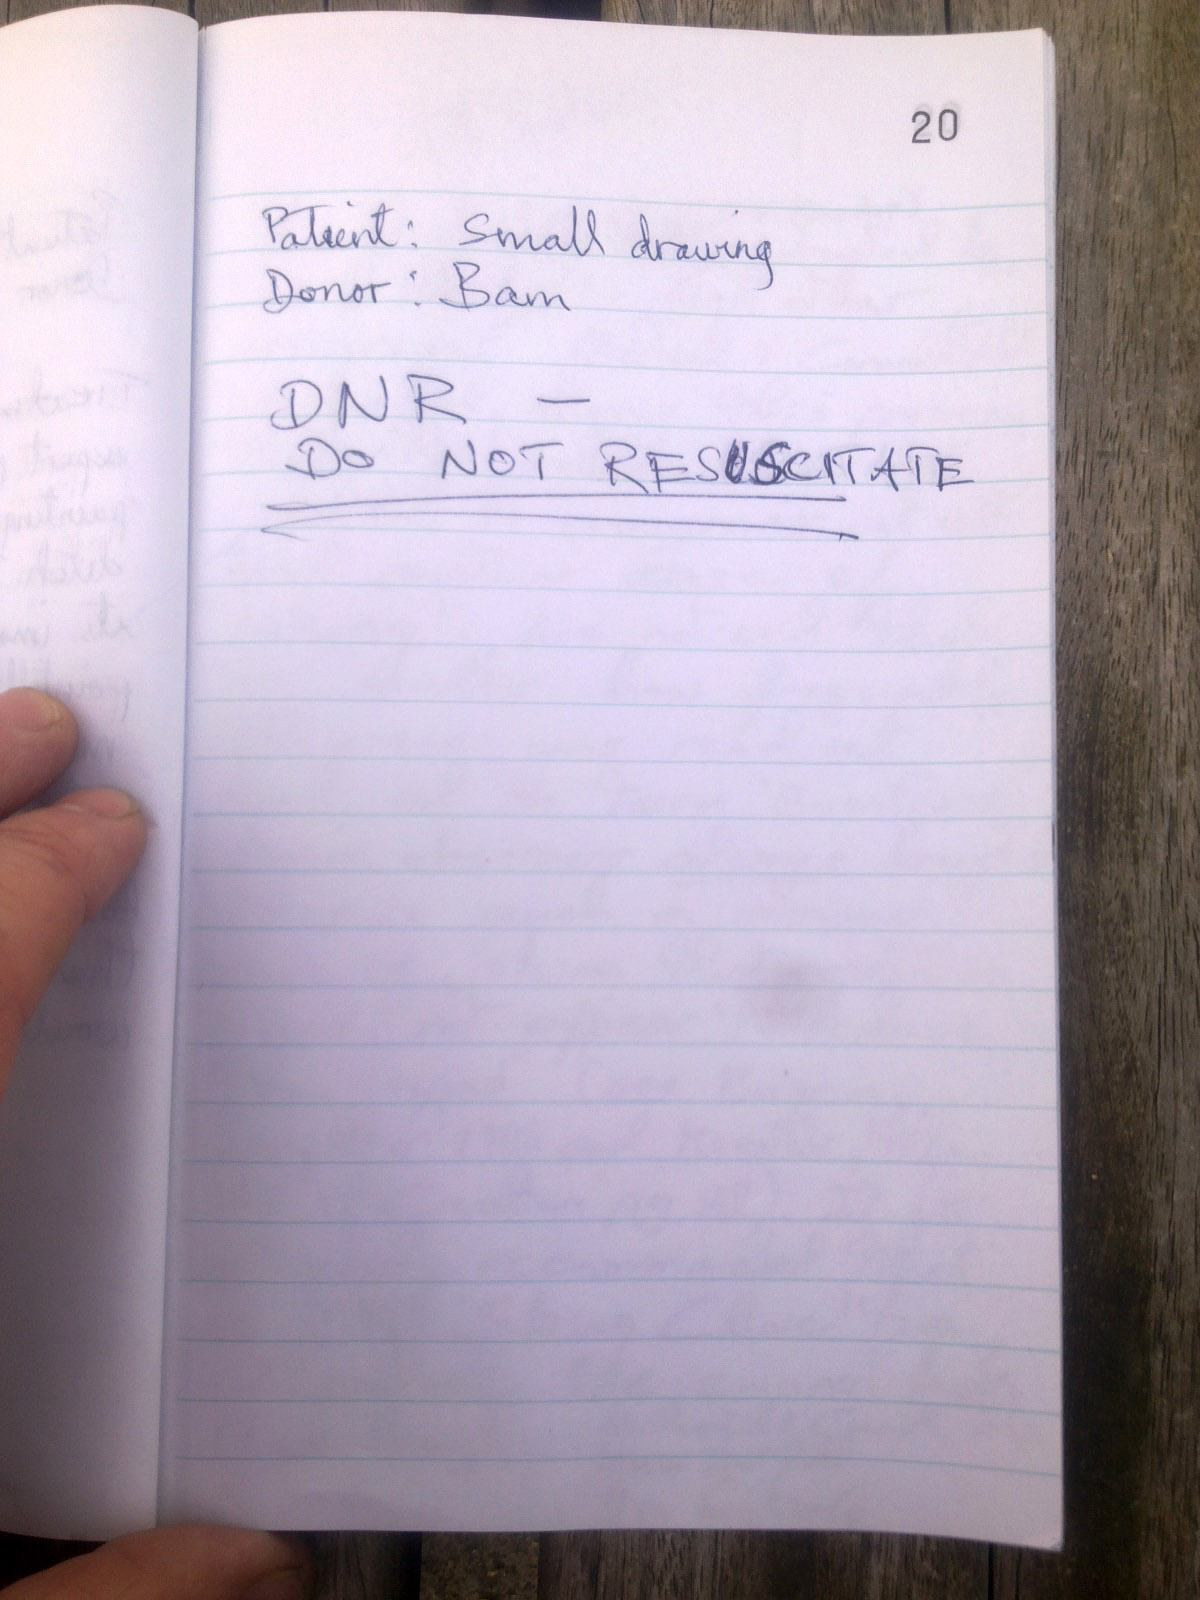 20
Patient: Small drawing
Donor: Bam
DNR —
DO NOT RESUSCITATE